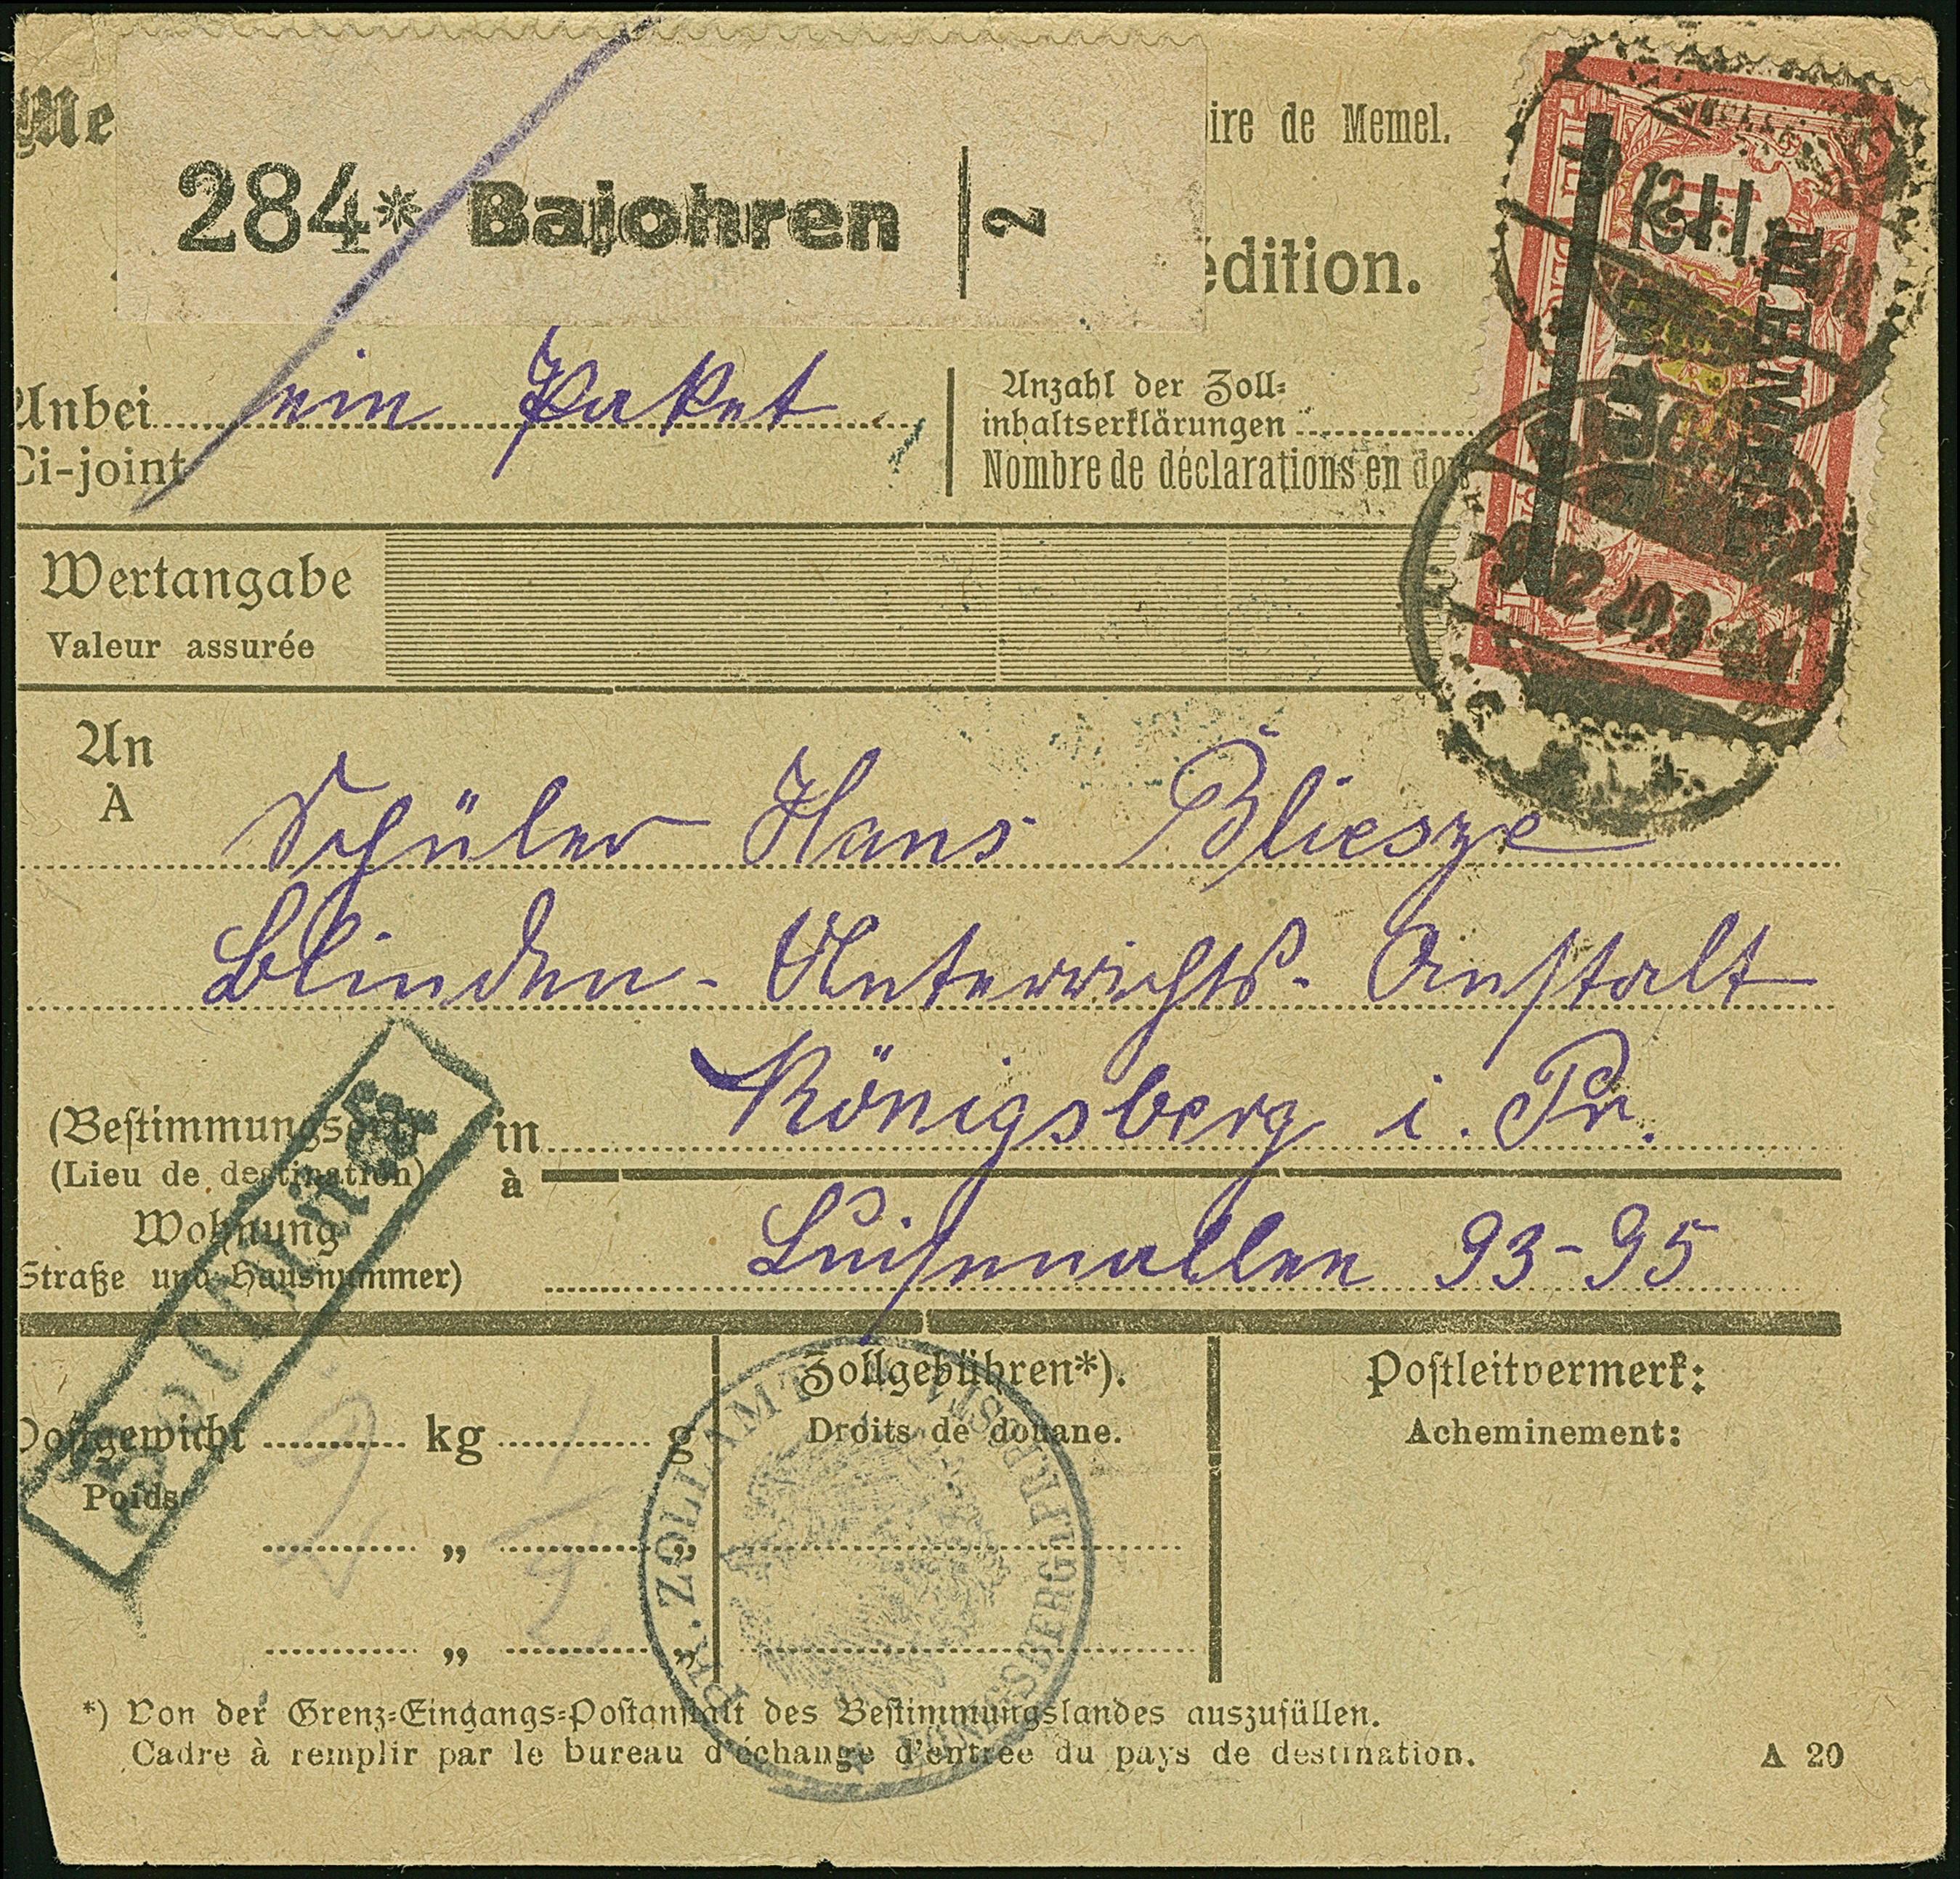 Me
ire de Memel.
284* Bajohren 2
édition.
Anbei ein Paket
Ci-joint
Anzahl der Zoll-
inhaltserklärungen
Nombre de déclarations en dou
MEMEL
Wertangabe
Valeur assurée
An
A
Schüler Hans Bliesze
Blinden-Unterrichts-Anstalt
(Bestimmungsort) in Königsberg i. Pr.
(Lieu de destination) à
Wohnung
Straße und Hausnummer) Luisenallee 93-95
Zollgebühren*).
Droits de douane.
Postleitvermerk:
Acheminement:
Postgewicht kg g
Poids
2 1/2
„ „
„ „
PR. ZOLLAMT
KÖNIGSBERG i. PR.
*) Von der Grenz-Eingangs-Postanstalt des Bestimmungslandes auszufüllen.
Cadre à remplir par le bureau d'échange d'entrée du pays de destination.
A 20